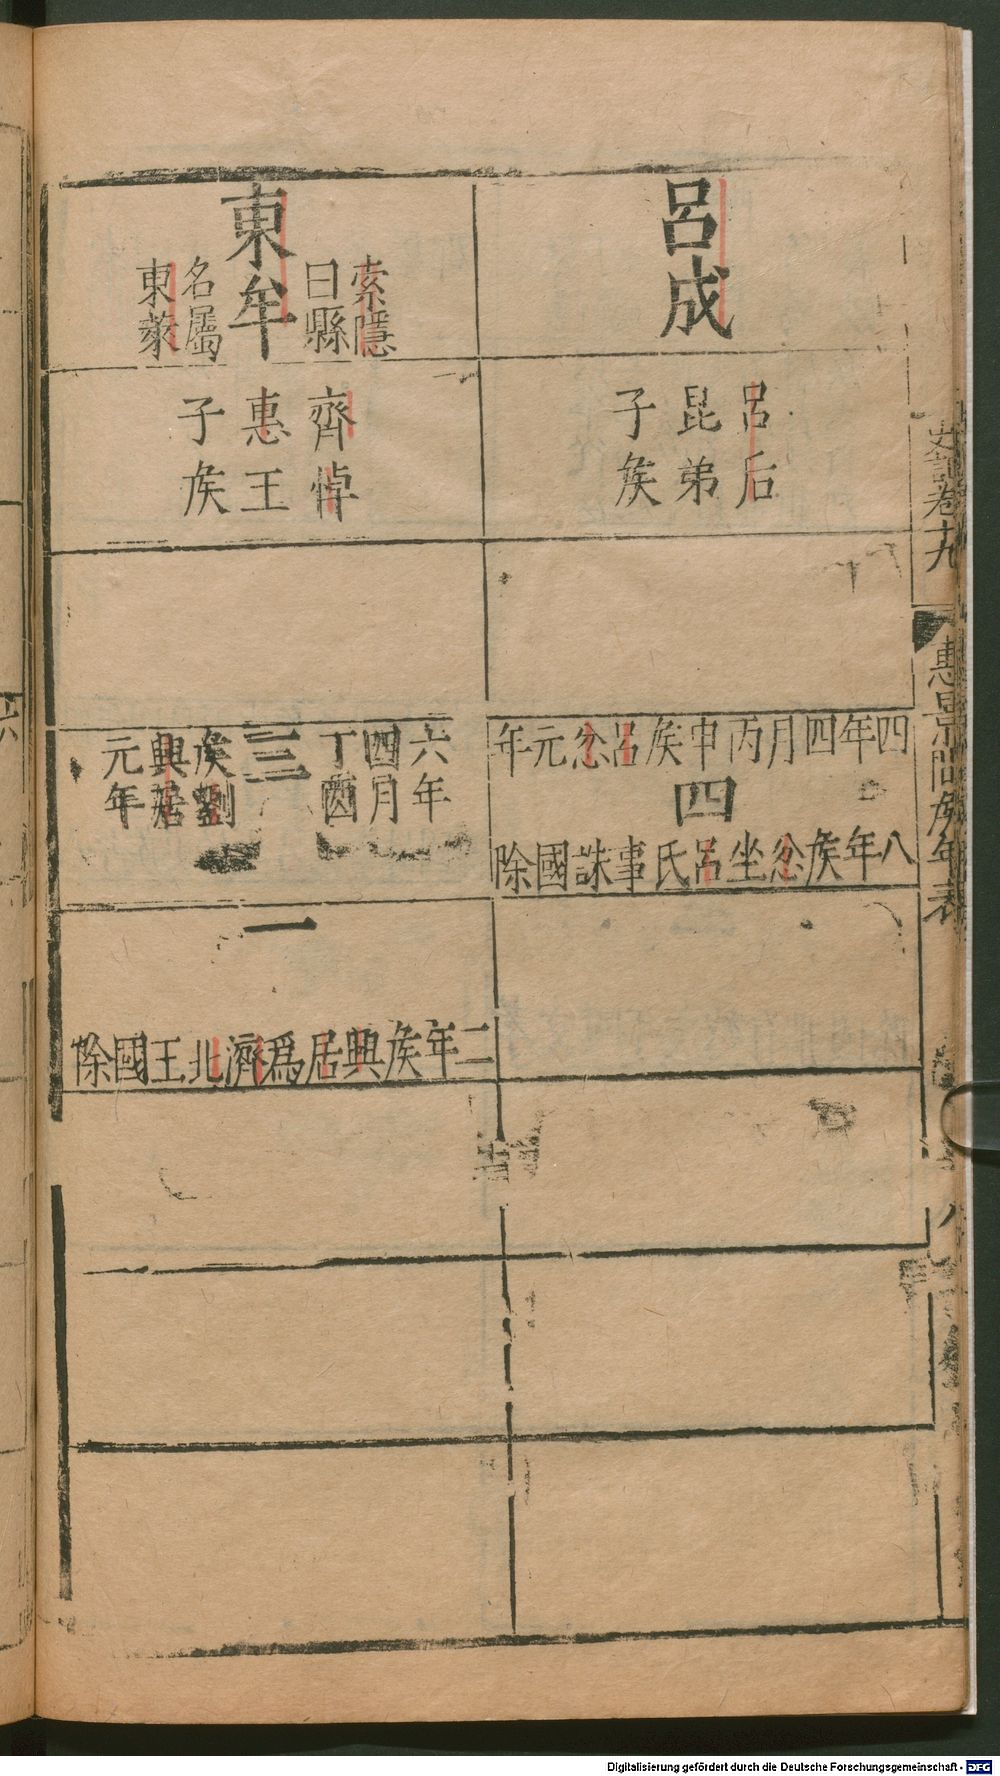 史記卷十九
惠景間矦年表
呂成
呂后
昆弟
子矦
四年四月丙申矦呂忿元年
四
八年矦忿坐呂氏事誅國除
東牟
索隱
曰縣
名屬
東萊
齊悼
惠王
子矦
六年
四月
丁酉
三
矦劉
興居
元年
一
二年矦興居爲濟北王國除
六
Digitalisierung gefördert durch die Deutsche Forschungsgemeinschaft - DFG